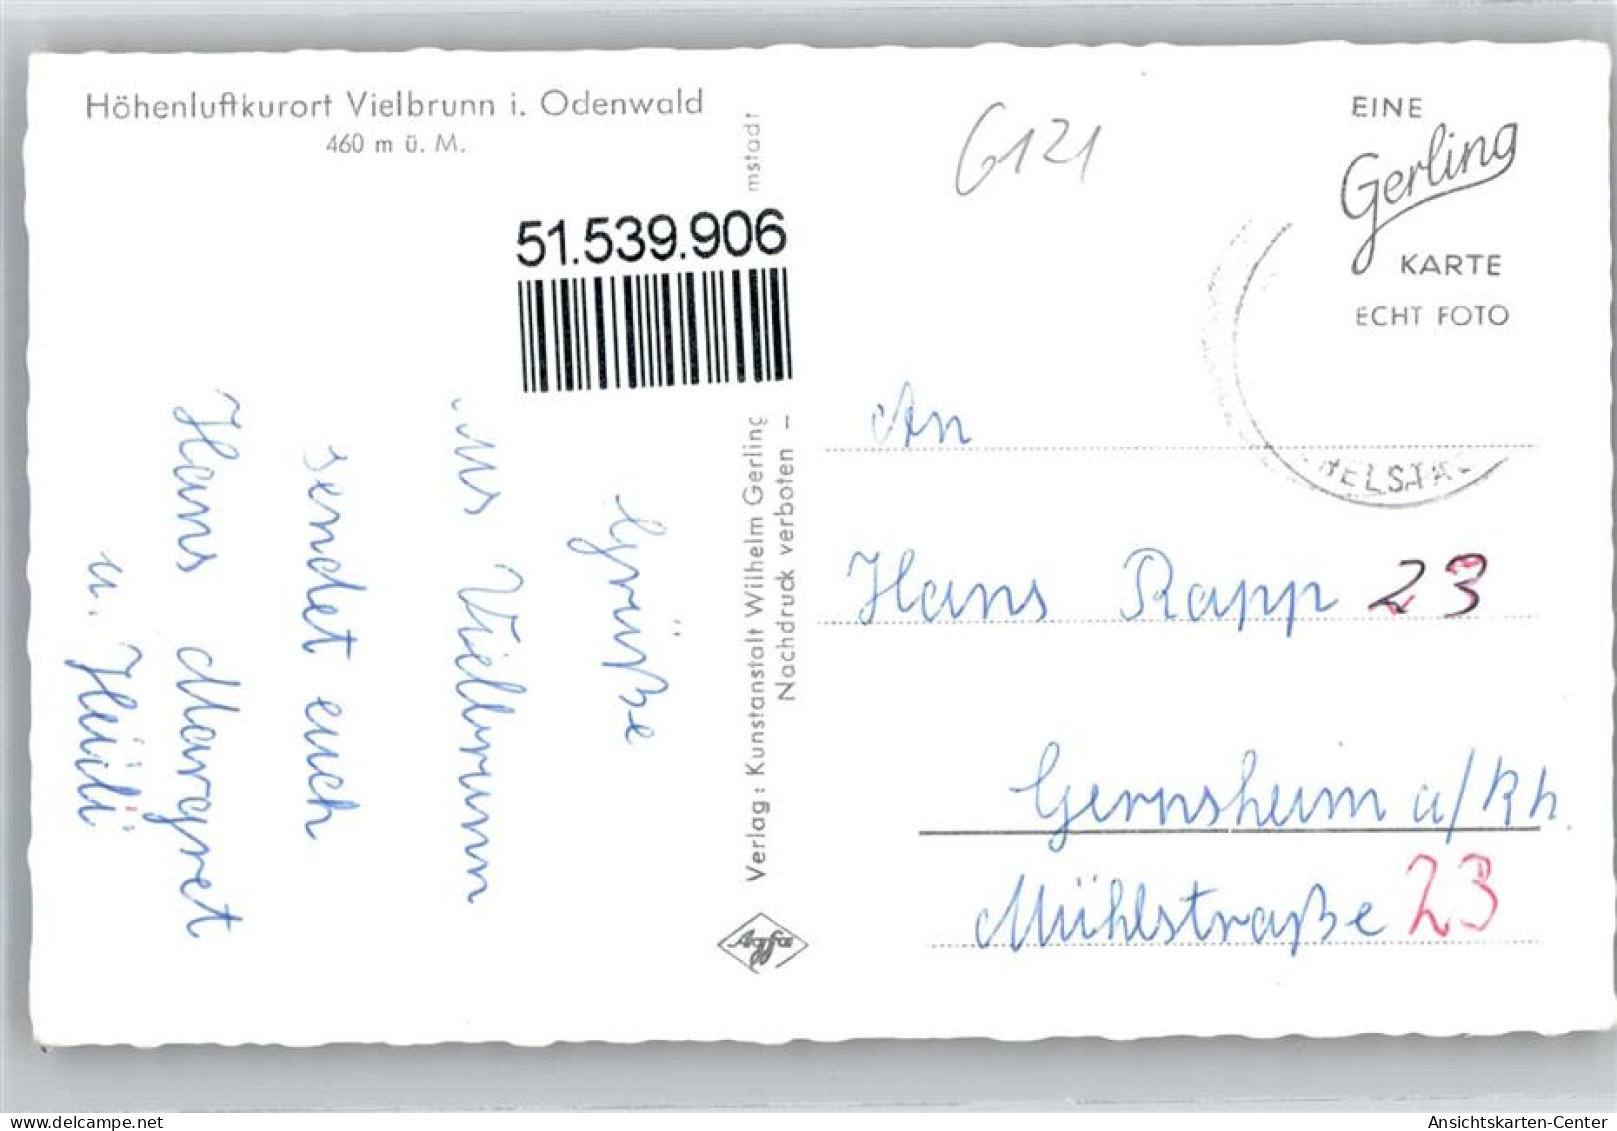 Höhenluftkurort Vielbrunn i. Odenwald
460 m ü. M.
51.539.906
mstadt
Verlag: Kunstanstalt Wilhelm Gerling
Nachdruck verboten –
Agfa
Grüße
Vielbrunn
sendet euch
Hans Margret
u.
G121
EINE
Gerling
KARTE
ECHT FOTO
HELSTA
An
Hans Rapp 23
Gernsheim a/Rh.
Mühlstraße 23
Ansichtskarten-Center
https://www.delcampe.net